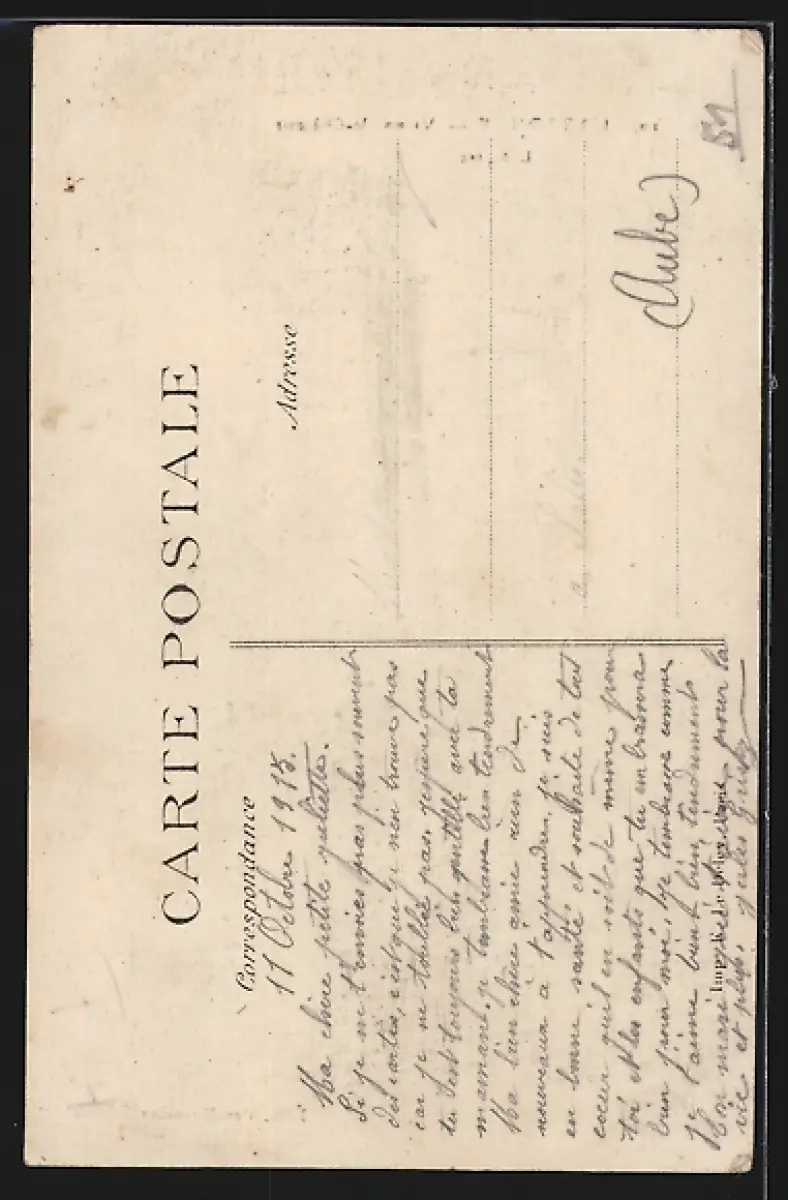 CARTE POSTALE
Correspondance
Adresse
11 Octobre 1915.
Ma chère petite juliette.
Si je ne t'envoies pas plus souvent
des cartes, c'est que je n'en trouve pas
car je ne toublie pas, jespère que
tu est toujours bien gentille avec ta
maman, je tembrasse bien tendrement
Ma bien chère amie rien de
nouveau a t'apprendre, je suis
en bonne santé et souhaite de tout
coeur qu'il en soit de même pour
toi et les enfants que tu embrassera
bien pour moi, je tembrasse comme
je t'aime bien bien tendrement
Ton mari pour la
vie et plus. jules
(Aube)
51